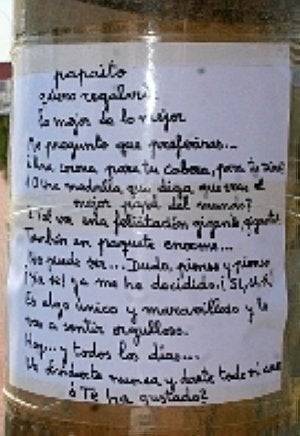 papaito
quiero regalarte
lo mejor de lo mejor
Me pregunto que preferirias...
¿Una corona para tu cabeza, para tu
¿O una medalla que diga, que eres el
mejor papá del mundo?
¿Tal vez una felicitación gigante, gigante?
También un paquete enorme...
No puede ser... Dudo, pienso y pienso
¡Ya se! ya me he decidido. ¡Si, si!
Es algo único y maravilloso y te
vas a sentir orgulloso.
Hoy... y todos los días...
nunca, y darte todo mi
¿Te ha gustado?